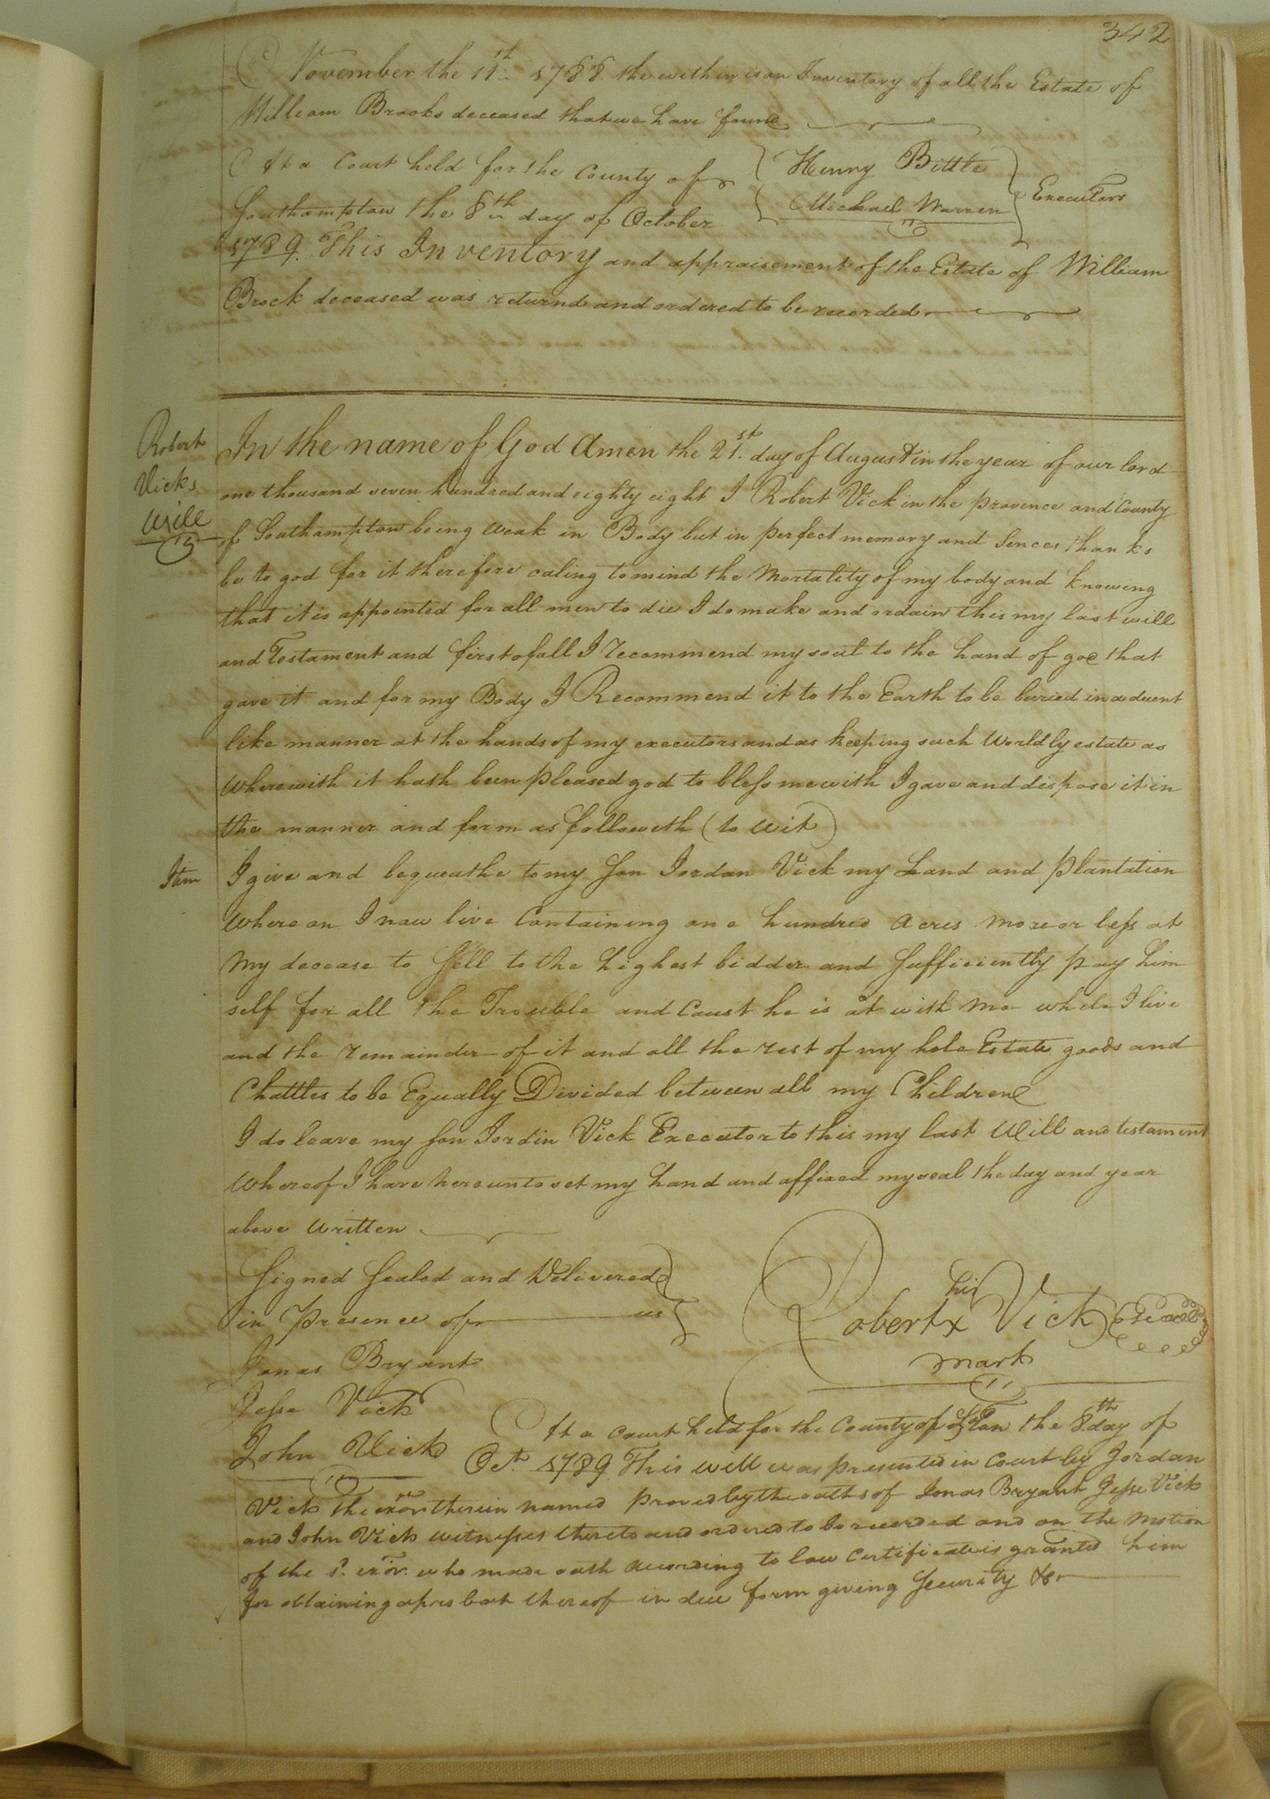 342
November the 11th 1788 the within is an Inventory of all the Estate of
William Brooks deceased that we have found
At a Court held for the County of
Southampton the 8th day of October
Henny Bittle
Michael Warren
Executors
1789. This Inventory and appraisement of the Estate of William
Brock deceased was returnd and ordered to be recorded
Robert
Vicks
Will
In the name of God Amen the 21st. day of August in the year of our lord
one thousand seven hundred and eighty eight I Robert Vick in the provence and County
of Southampton being weak in Body but in perfect memory and Sences thanks
be to god for it therefore caling to mind the Mortality of my body and knowing
that it is appointed for all men to die I do make and ordain this my last will
and Testament and first of all I recommend my soul to the hand of god that
gave it and for my Body I Recommend it to the Earth to be buried in a decent
like manner at the hands of my executors and as keeping such Worldly estate as
wherewith it hath been pleased god to bless me with I gave and dispose it in
the manner and form as followeth (to wit)
Item
I give and bequeathe to my Son Jordan Vick my Land and plantation
whereon I now live Containing one hundred Acres more or less at
my decease to Sell to the highest bidder and Sufficiently pay him
self for all the Trouble and Caust he is at with me while I live
and the remainder of it and all the rest of my hole Estate goods and
Chattles to be Equally Divided between all my Children
I do leave my Son Jordin Vick Executor to this my last Will and testament
whereof I have hereunto set my hand and affixed my seal the day and year
above written
Signed Sealed and Delivered
in Presence of us
his
Robert x Vick (Seal)
mark
Jonas Bryant
Jesse Vick
John Vick
At a court held for the County of So.ton the 8th day of
Oct. 1789 This will was presented in Court by Jordan
Vick the exor. therein named proved by the oaths of Jonas Bryant Jesse Vick
and John Vick witnesses thereto and ordered to be recorded and on the motion
of the sd. exor. who made oath according to law certificate is granted him
for obtaining a probat thereof in due form giving Security &c